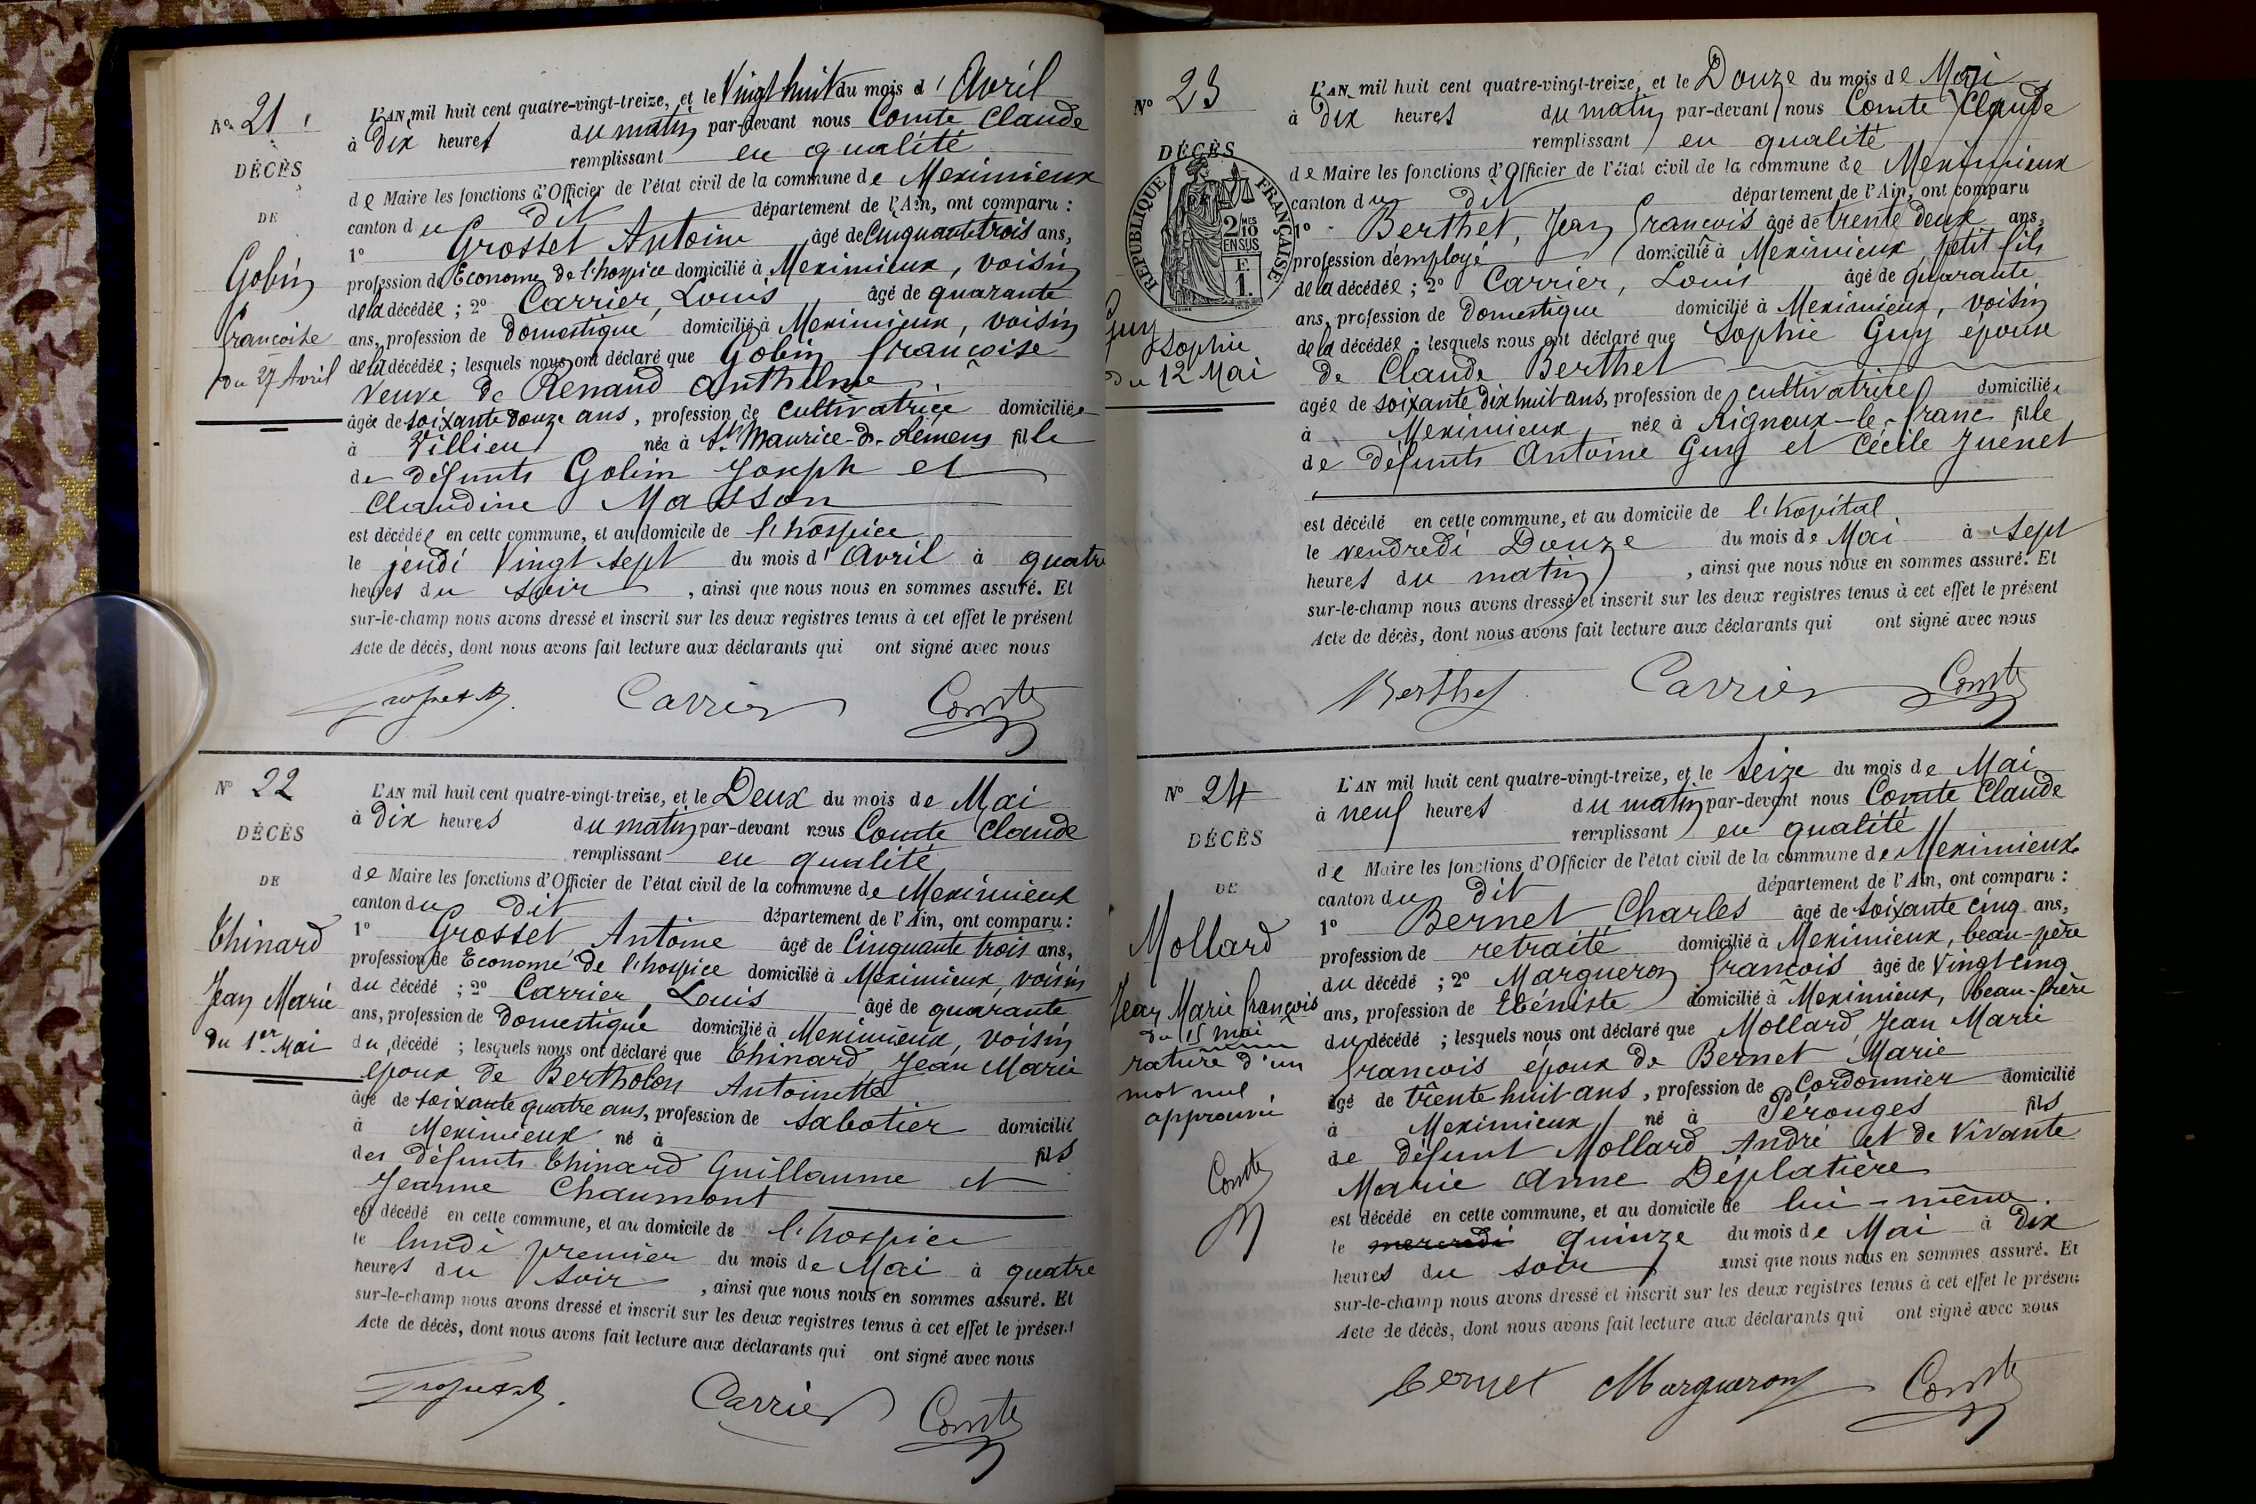 N° 21
DÉCÈS
DE
Gobin
Françoise
du 27 Avril
L'AN mil huit cent quatre-vingt-treize, et le Vingt huit du mois d' Avril
à Dix heures du matin par-devant nous Comte Claude
remplissant en qualité
de Maire les fonctions d'Officier de l'état civil de la commune de Meximieux
canton du dit département de l'Ain, ont comparu :
1° Grosset Antoine âgé de Cinquante trois ans,
profession de Econome de l'hospice domicilié à Meximieux, voisin
de la décédée ; 2° Carrier, Louis âgé de quarante
ans, profession de Domestique domicilié à Meximieux, voisin
de la décédée ; lesquels nous ont déclaré que Gobin Françoise
Veuve de Renaud Anthelme
âgée de soixante Douze ans, profession de cultivatrice domiciliée
à Villieu née à St Maurice-de-Rémens fille
de défunts Gobin Joseph et
Claudine Masson
est décédée en cette commune, et au domicile de l'hospice
le jeudi Vingt sept du mois d' Avril à quatre
heures du soir, ainsi que nous nous en sommes assuré. Et
sur-le-champ nous avons dressé et inscrit sur les deux registres tenus à cet effet le présent
Acte de décès, dont nous avons fait lecture aux déclarants qui ont signé avec nous
Grosset A. Carrier Comte
N° 22
DÉCÈS
DE
Thinard
Jean Marie
du 1er Mai
L'AN mil huit cent quatre-vingt-treize, et le Deux du mois de Mai
à Dix heures du matin par-devant nous Comte Claude
remplissant en qualité
de Maire les fonctions d'Officier de l'état civil de la commune de Meximieux
canton du dit département de l'Ain, ont comparu :
1° Grosset Antoine âgé de Cinquante trois ans,
profession de Econome de l'hospice domicilié à Meximieux, voisin
du décédé ; 2° Carrier, Louis âgé de quarante
ans, profession de Domestique domicilié à Meximieux, voisin
du décédé ; lesquels nous ont déclaré que Thinard, Jean Marie
époux de Bertholon Antoinette
âgé de soixante quatre ans, profession de Sabotier domicilié
à Meximieux né à fils
des défunts Thinard Guillaume et
Jeanne Chaumont
est décédé en cette commune, et au domicile de l'hospice
le lundi premier du mois de Mai à quatre
heures du soir, ainsi que nous nous en sommes assuré. Et
sur-le-champ nous avons dressé et inscrit sur les deux registres tenus à cet effet le présent
Acte de décès, dont nous avons fait lecture aux déclarants qui ont signé avec nous
Grosset A. Carrier Comte
N° 23
DÉCÈS
RÉPUBLIQUE FRANÇAISE
2/10 MES
EN SUS
F.
1.
Guy
Sophie
du 12 Mai
L'AN mil huit cent quatre-vingt-treize, et le Douze du mois de Mai
à Dix heures du matin par-devant nous Comte Claude
remplissant en qualité
de Maire les fonctions d'Officier de l'état civil de la commune de Meximieux
canton du dit département de l'Ain, ont comparu
1° Berthet, Jean François âgé de trente deux ans,
profession d'employé domicilié à Meximieux, petit fils
de la décédée ; 2° Carrier, Louis âgé de quarante
ans, profession de Domestique domicilié à Meximieux, voisin
de la décédée ; lesquels nous ont déclaré que Sophie Guy épouse
de Claude Berthet
âgée de soixante dix huit ans, profession de cultivatrice domiciliée
à Meximieux née à Rigneux-le-franc fille
de défunts Antoine Guy et Cécile Juenet
est décédé en cette commune, et au domicile de l'hopital
le vendredi Douze du mois de Mai à sept
heures du matin, ainsi que nous nous en sommes assuré. Et
sur-le-champ nous avons dressé et inscrit sur les deux registres tenus à cet effet le présent
Acte de décès, dont nous avons fait lecture aux déclarants qui ont signé avec nous
Berthet Carrier Comte
N° 24
DÉCÈS
DE
Mollard
Jean Marie François
du 15 mai
rature d'un
mot nul
approuvée
Comte
L'AN mil huit cent quatre-vingt-treize, et le Seize du mois de Mai
à neuf heures du matin par-devant nous Comte Claude
remplissant en qualité
de Maire les fonctions d'Officier de l'état civil de la commune de Meximieux
canton du dit département de l'Ain, ont comparu :
1° Bernet Charles âgé de soixante cinq ans,
profession de retraité domicilié à Meximieux, beau-père
du décédé ; 2° Margueron François âgé de Vingt cinq
ans, profession de Ebéniste domicilié à Meximieux, beau-frère
du décédé ; lesquels nous ont déclaré que Mollard, Jean Marie
François époux de Bernet Marie
âgé de trente huit ans, profession de Cordonnier domicilié
à Meximieux né à Pérouges fils
de défunt Mollard André et de Vivante
Marie Anne Déplatière
est décédé en cette commune, et au domicile de lui-même.
le mercredi quinze du mois de Mai à Dix
heures du soir ainsi que nous nous en sommes assuré. Et
sur-le-champ nous avons dressé et inscrit sur les deux registres tenus à cet effet le présent
Acte de décès, dont nous avons fait lecture aux déclarants qui ont signé avec nous
Bernet Margueron Comte